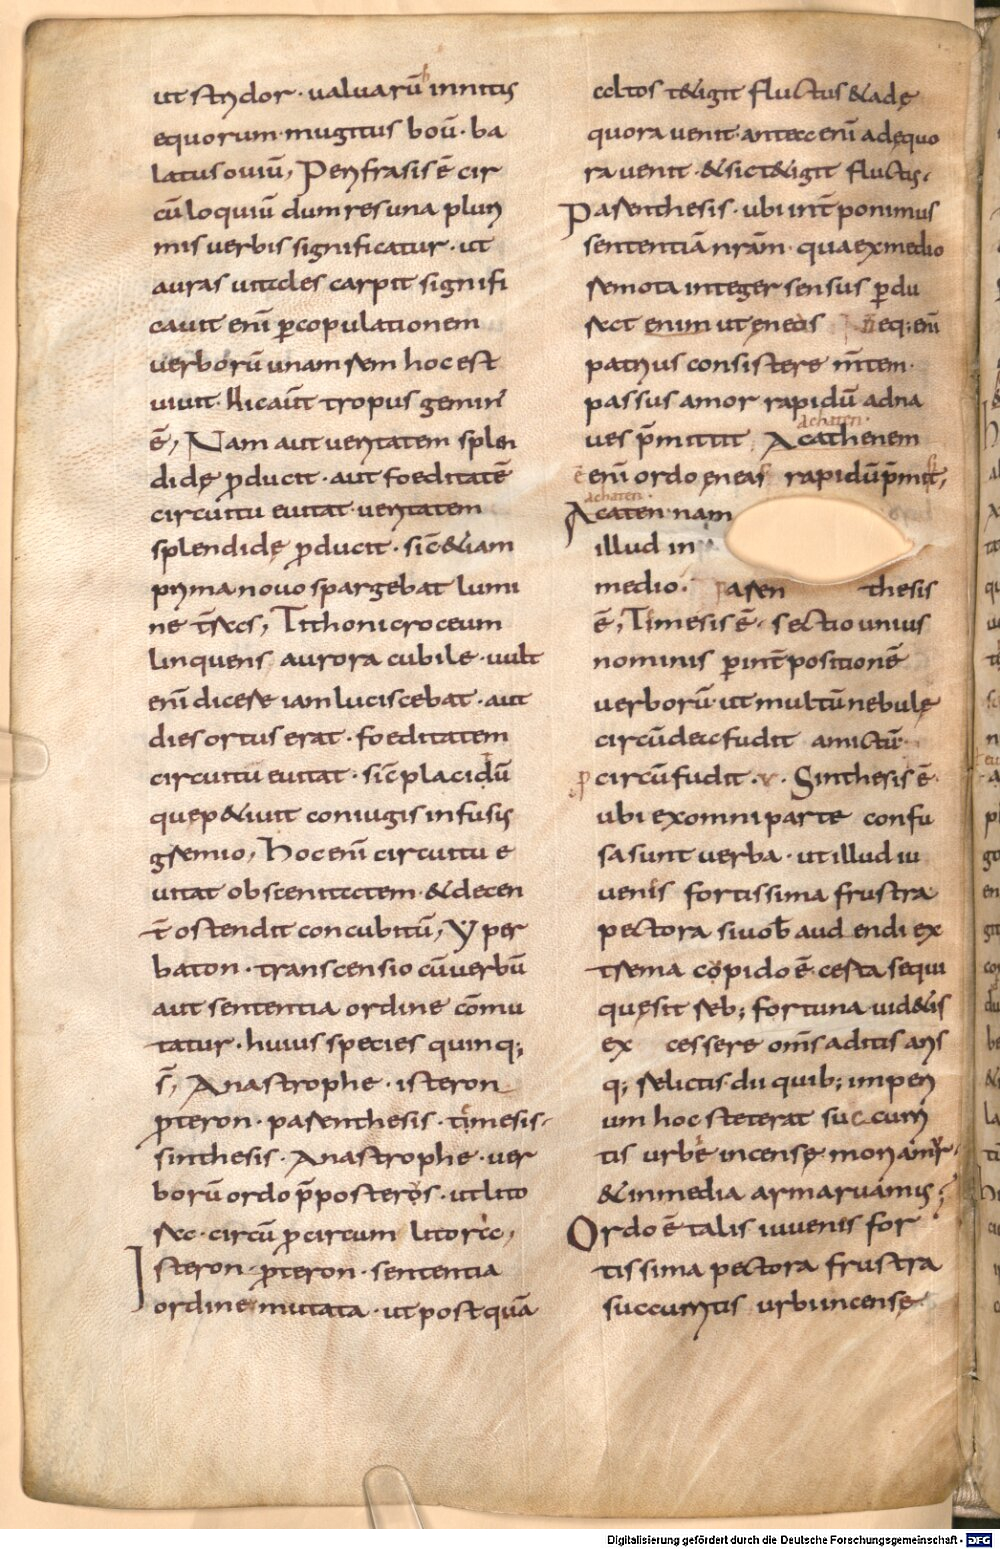 ut stridor · ualuarū hinnitus
equorum · mugitus boū · ba
latus ouiū, Perifrasis ē cir
cūloquiū dum res una pluri
mis uerbis significatur · ut
auras uitales carpit signifi
cauit eni᷑ p copulationem
uerborū unam rem hoc est
uiuit · Hic aūt tropus gemin᷑
ē, Nam aut ueritatem splen
didę ꝓducit · aut foeditatē
circuitu euitat · ueritatem
splendidę ꝓducit · sic̄ &iam
prima nouo spargebat lumi
ne t̄ras, Tithoni croceum
linquens aurora cubile · uult
eni᷑ dicere iam luciscebat · aut
dies ortus erat · foeditatem
circuitu euitat · sic̄ placidū
que p&iuit coniugis infusis
gremio, hoc eni᷑ circuitu e
uitat obscenitatem · & decen
t̄ ostendit concubitū, Yper
baton · transcensio cū uerbū
aut sententia ordine cōmu
tatur · huius species quinq;
s̄, Anastrophe · isteron
ꝓteron · parenthesis · timesis ·
sinthesis · Anastrophe · uer
borū ordo p̄posterus · ut lito
ra · circū ꝓ circum litora,
Isteron · ꝓteron · sententia
ordine mutata · ut postquā
altos t&igit fluctus & ad ę
quora uenit · antea eni᷑ ad ęquo
ra uenit · & sic t&igit fluctus ·
Parenthesis · ubi int̄ponimus
sententiā nr̄am · qua ex medio
remota integer sensus p̲du
rat enim ut eneas neq; eni᷑
patrius consistere m̄tem ·
passus amor rapidū ad na
achaten ·
ues p̄mittit Acathenem
ē eni᷑ ordo ęneas rapidū p̄mit,
achaten ·
Acaten · nam
illud in
medio · paren thesis
ē, Timesis ē · sectio unius
nominis p int̄positionē
uerborū · ut multū nebulę
circū dea fudit amictū ·
ꝓ circūfudit · Sinthesis ē ·
ubi ex omni parte confu
sa sunt uerba · ut illud iu
uenis fortissima frustra
pectora si uob̄ audendi ex
trema cupido ē certa sequi
quę sit reb; fortuna uid&is
ex cessere om̄s aditis aris
q; relictis · dii quib; imperi
um hoc steterat succurri
tis urbe incensę · moriam᷑ ·
& in media arma ruamus;
Ordo ē talis iuuenis for
tissima pectora frustra
succurritis urbi incensę ·
Digitalisierung gefördert durch die Deutsche Forschungsgemeinschaft - DFG